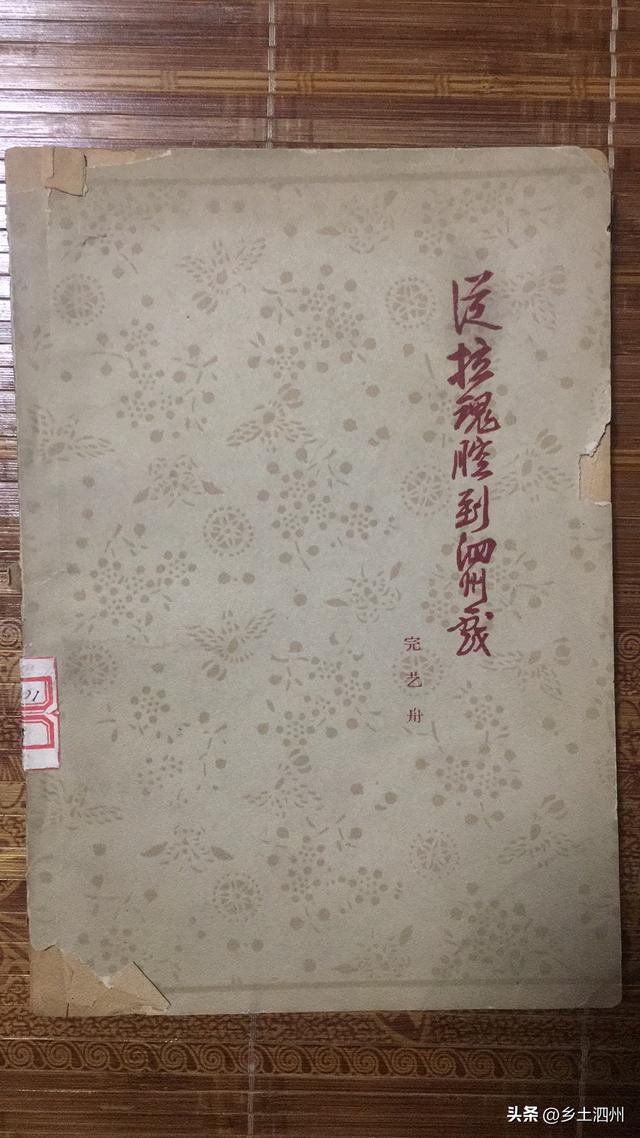 从拉魂腔到泗州戏
完艺舟
01
头条 @乡土泗州